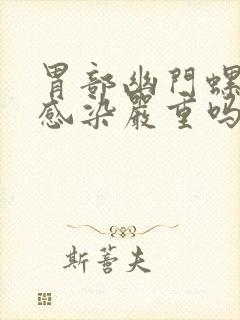 胃部幽門螺
感染嚴重嗎
斯蕾夫